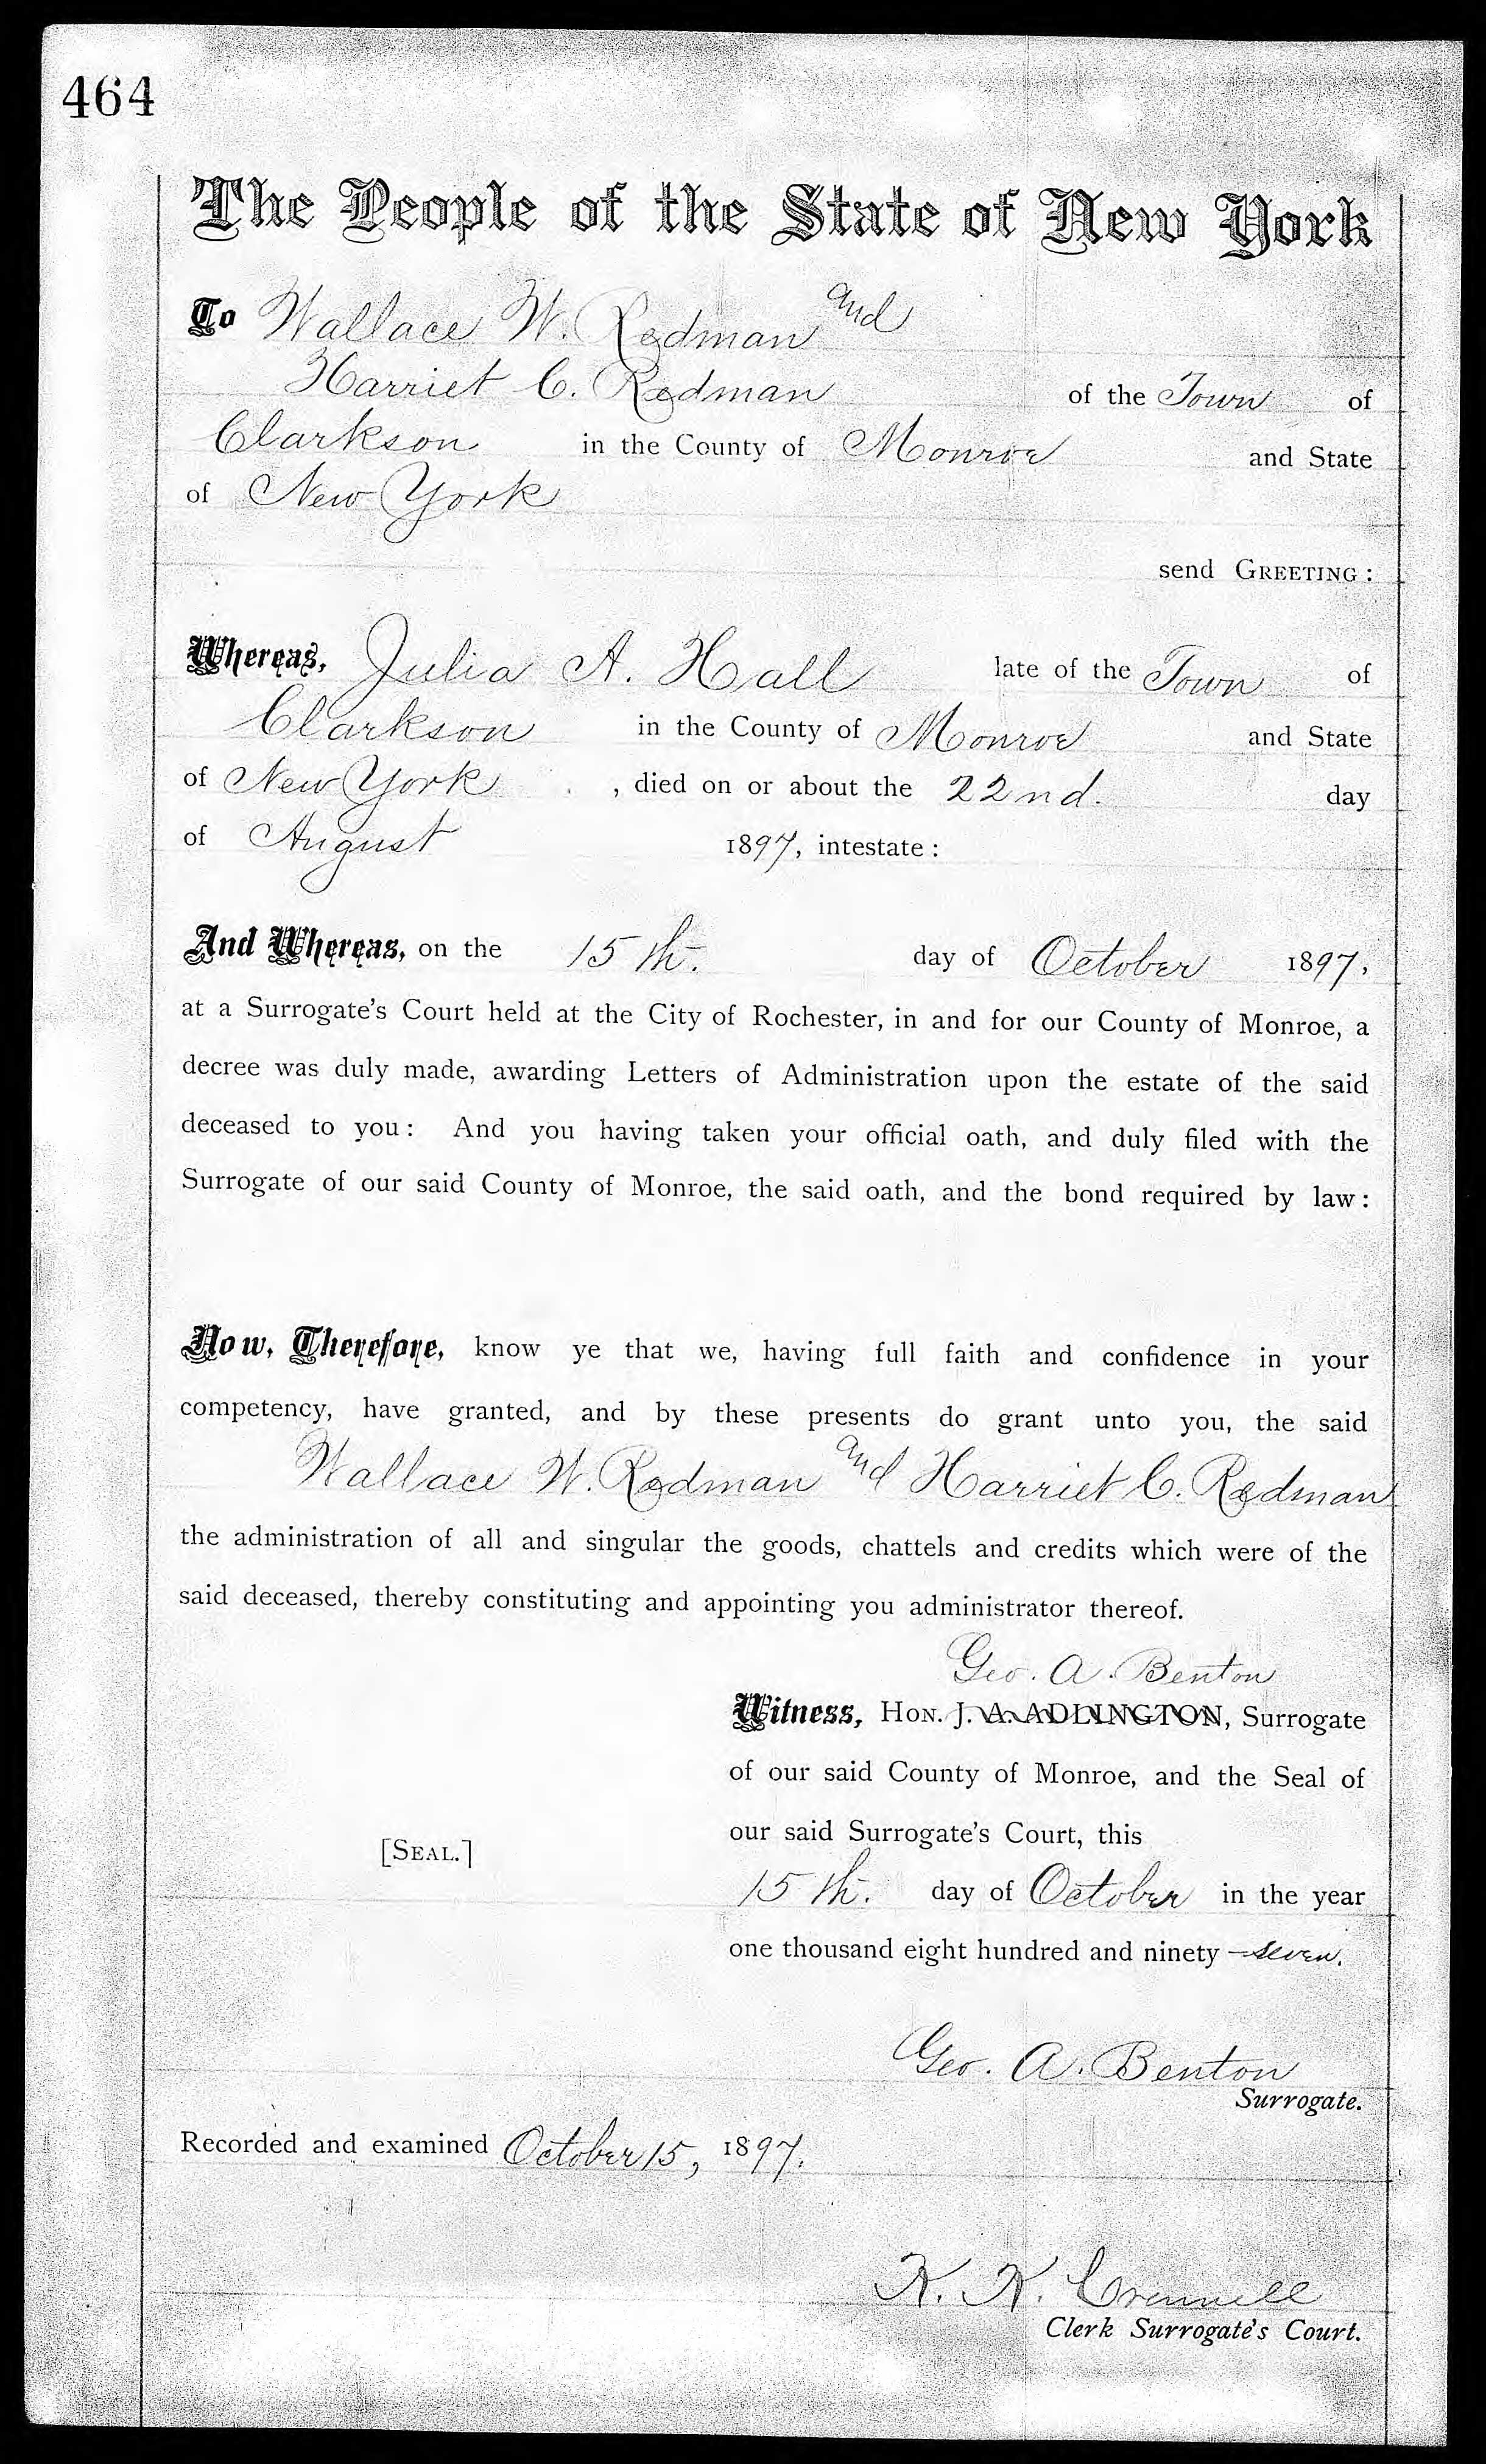 464
The People of the State of New York
To Wallace W. Redman and
Harriet C. Redman of the Town of
Clarkson in the County of Monroe and State
of New York
send GREETING :
Whereas, Julia A. Hall late of the Town of
Clarkson in the County of Monroe and State
of New York , died on or about the 22nd. day
of August 1897, intestate :
And Whereas, on the 15th. day of October 1897,
at a Surrogate's Court held at the City of Rochester, in and for our County of Monroe, a
decree was duly made, awarding Letters of Administration upon the estate of the said
deceased to you : And you having taken your official oath, and duly filed with the
Surrogate of our said County of Monroe, the said oath, and the bond required by law :
Now, Therefore, know ye that we, having full faith and confidence in your
competency, have granted, and by these presents do grant unto you, the said
Wallace W. Redman and Harriet C. Redman
the administration of all and singular the goods, chattels and credits which were of the
said deceased, thereby constituting and appointing you administrator thereof.
Geo. A. Benton
Witness, HON. J. A. ADLINGTON, Surrogate
of our said County of Monroe, and the Seal of
our said Surrogate's Court, this
[SEAL.]
15th. day of October in the year
one thousand eight hundred and ninety-seven.
Geo. A. Benton
Surrogate.
Recorded and examined October 15, 1897.
Clerk Surrogate's Court.